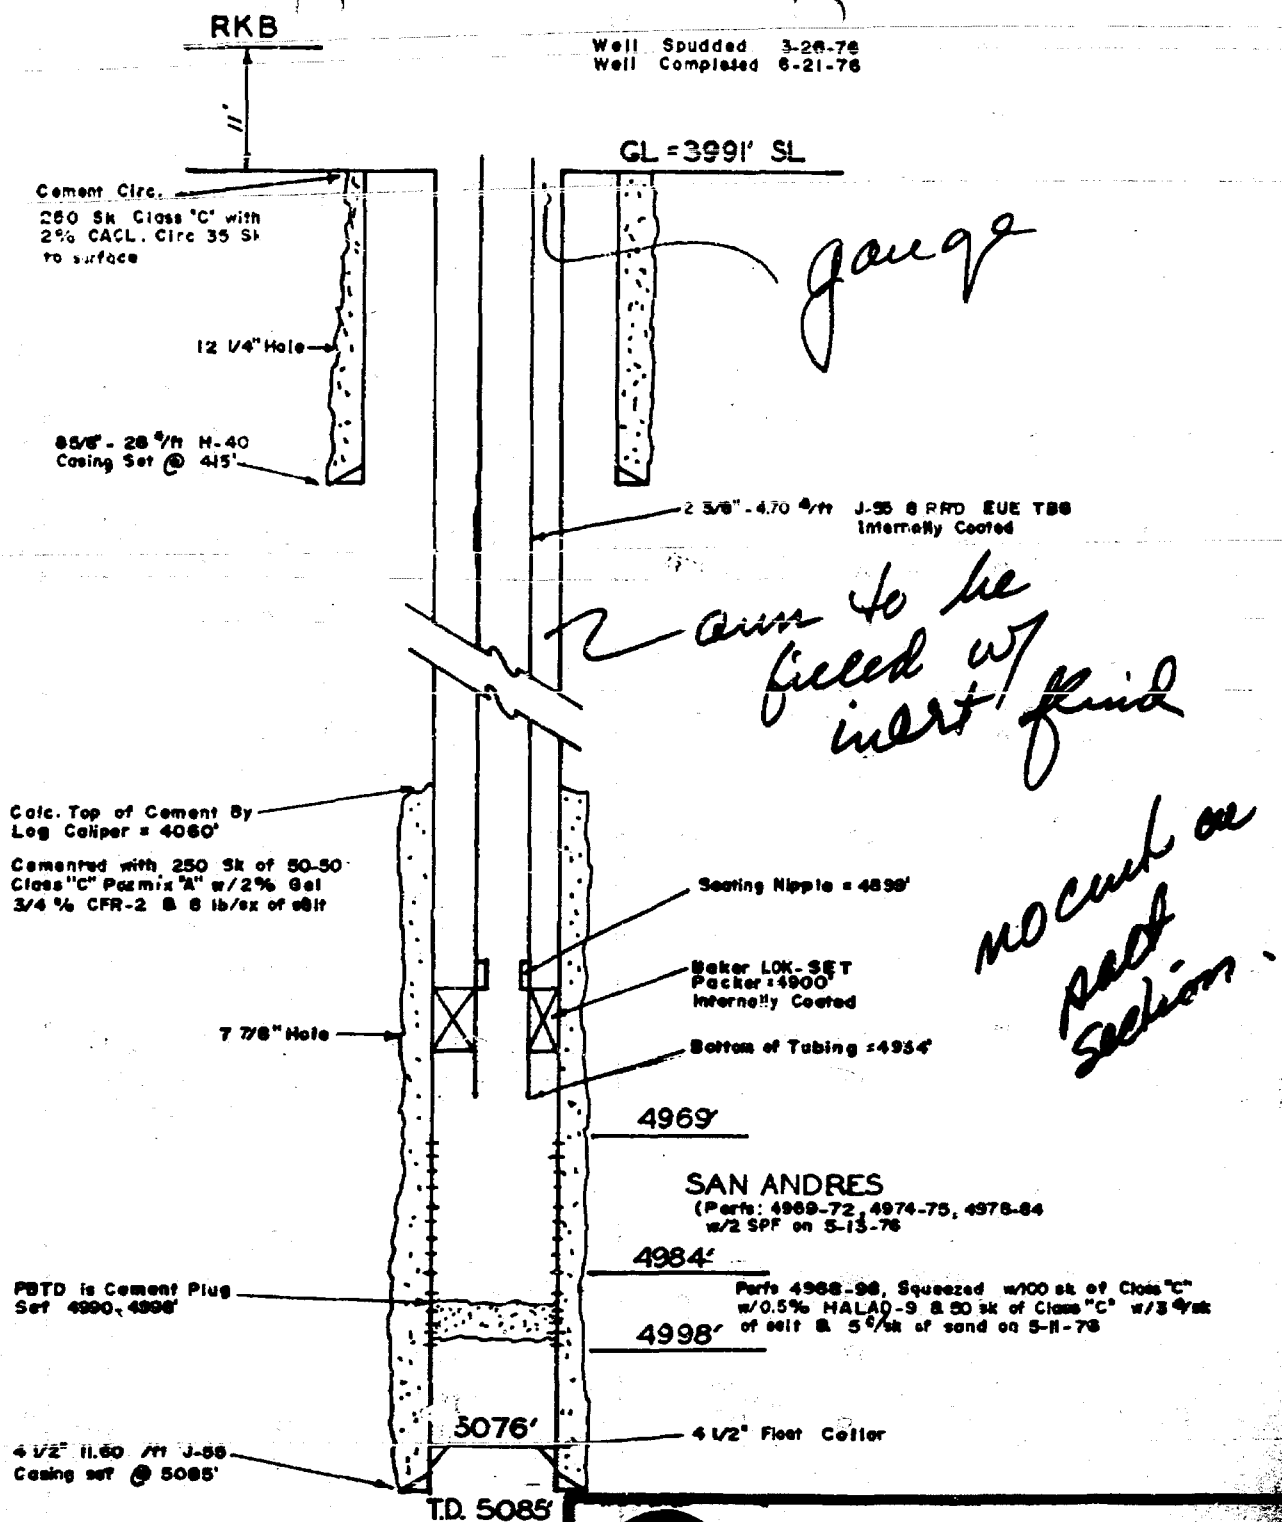 RKB
Well Spudded 3-28-76
Well Completed 6-21-76
11'
GL = 3991' SL
Cement Circ.
250 Sk Class "C" with
2% CACL. Circ 35 Sk
to surface
gauge
12 1/4" Hole
8 5/8" - 28 #/ft H-40
Casing Set @ 415'
2 3/8" - 4.70 #/ft J-55 8 RRD EUE TBG
Internally Coated
ann to be
filled w/
inert fluid
Calc. Top of Cement By
Log Caliper = 4060'
Cemented with 250 Sk of 50-50
Class "C" Pozmix "A" w/2% Gel
3/4 % CFR-2 & 6 lb/sx of salt
no cmt on
salt
section.
Seating Nipple = 4899'
Baker LOK-SET
Packer = 4900'
Internally Coated
7 7/8" Hole
Bottom of Tubing = 4934'
4969'
SAN ANDRES
(Perfs: 4969-72, 4974-75, 4978-84
w/2 SPF on 5-13-76
4984'
PBTD is Cement Plug
Set 4990-4998'
Perfs 4968-98, Squeezed w/100 sk of Class "C"
w/0.5% HALAD-9 & 50 sk of Class "C" w/3 #/sk
of salt & 5 #/sk of sand on 5-11-76
4998'
5076'
4 1/2" Float Collar
4 1/2" 11.60 /ft J-55
Casing set @ 5085'
T.D. 5085'